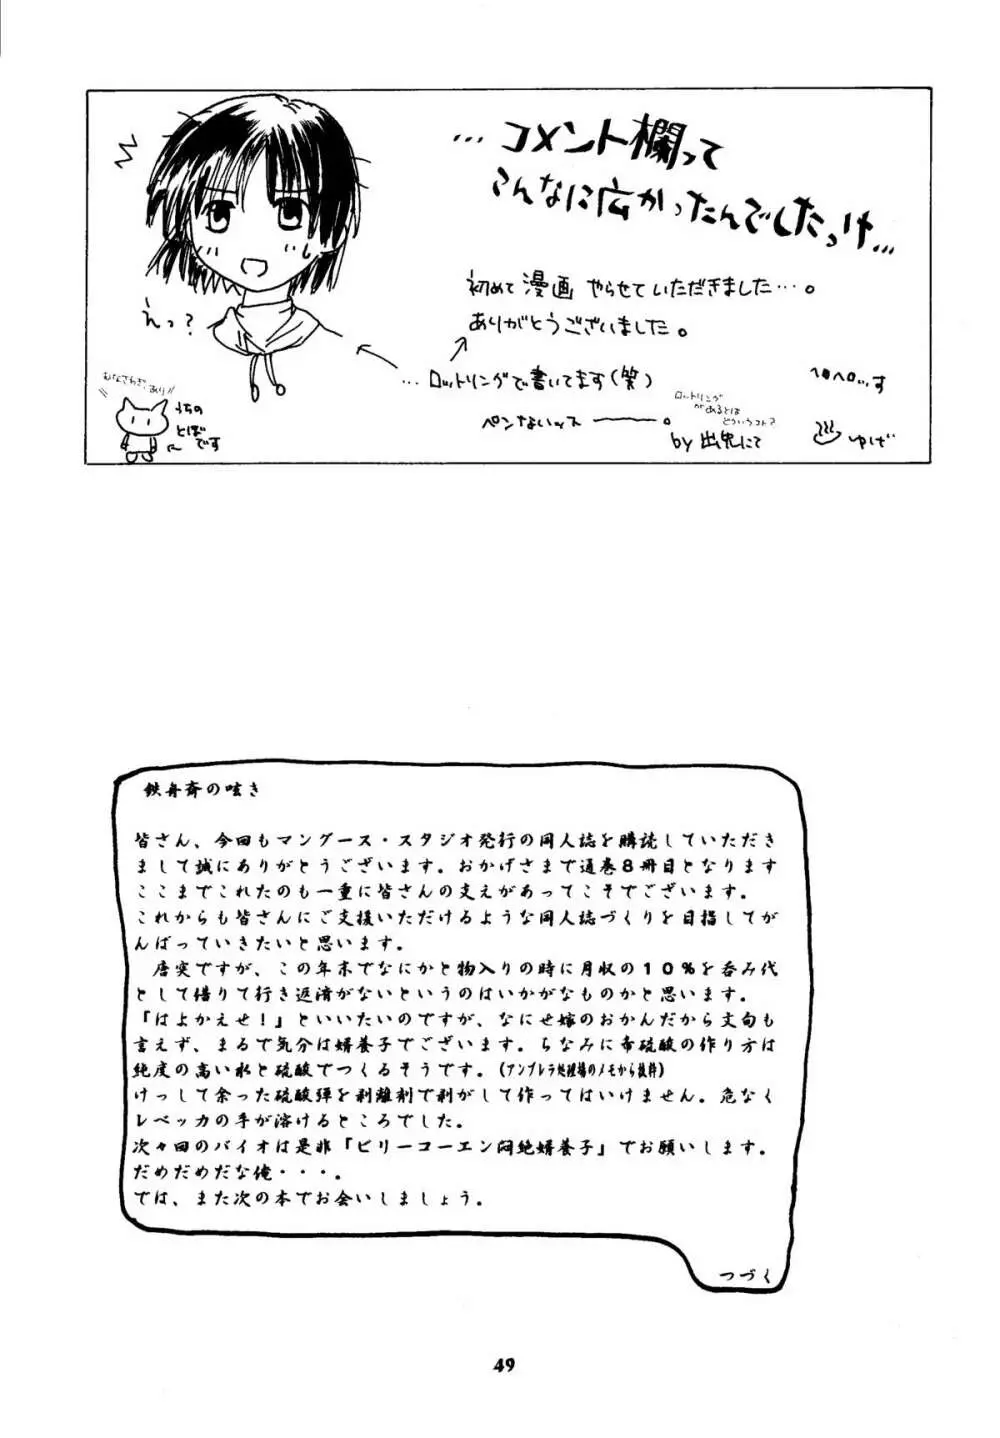 …コメント欄って
こんなに広かったんでしたっけ…
初めて漫画やらせていただきました…。
ありがとうございました。
えっ?
…ロットリングで書いてます(笑)
ペンないッス―――。
ロットリング
があるとは
どういうコト?
by 出兎にて
ヘロヘロ…っす
ゆげ
むなさわぎ、あり!!
うちの
とぼ
です
鉄舟斎の呟き
皆さん、今回もマングース・スタジオ発行の同人誌を購読していただき
まして誠にありがとうございます。おかげさまで通巻8冊目となります
ここまでこれたのも一重に皆さんの支えがあってこそでございます。
これからも皆さんにご支援いただけるような同人誌づくりを目指してが
んばっていきたいと思います。
唐突ですが、この年末でなにかと物入りの時に月収の10%を呑み代
として借りて行き返済がないというのはいかがなものかと思います。
『はよかえせ!』といいたいのですが、なにせ嫁のおかんだから文句も
言えず、まるで気分は婿養子でございます。ちなみに希硫酸の作り方は
純度の高い水と硫酸でつくるそうです。(アンブレラ処理場のメモから抜粋)
けっして余った硫酸弾を剥離剤で剥がして作ってはいけません。危なく
レベッカの手が溶けるところでした。
次々回のバイオは是非『ビリーコーエン悶絶婿養子』でお願いします。
だめだめだな俺・・・。
では、また次の本でお会いしましょう。
つづく
49